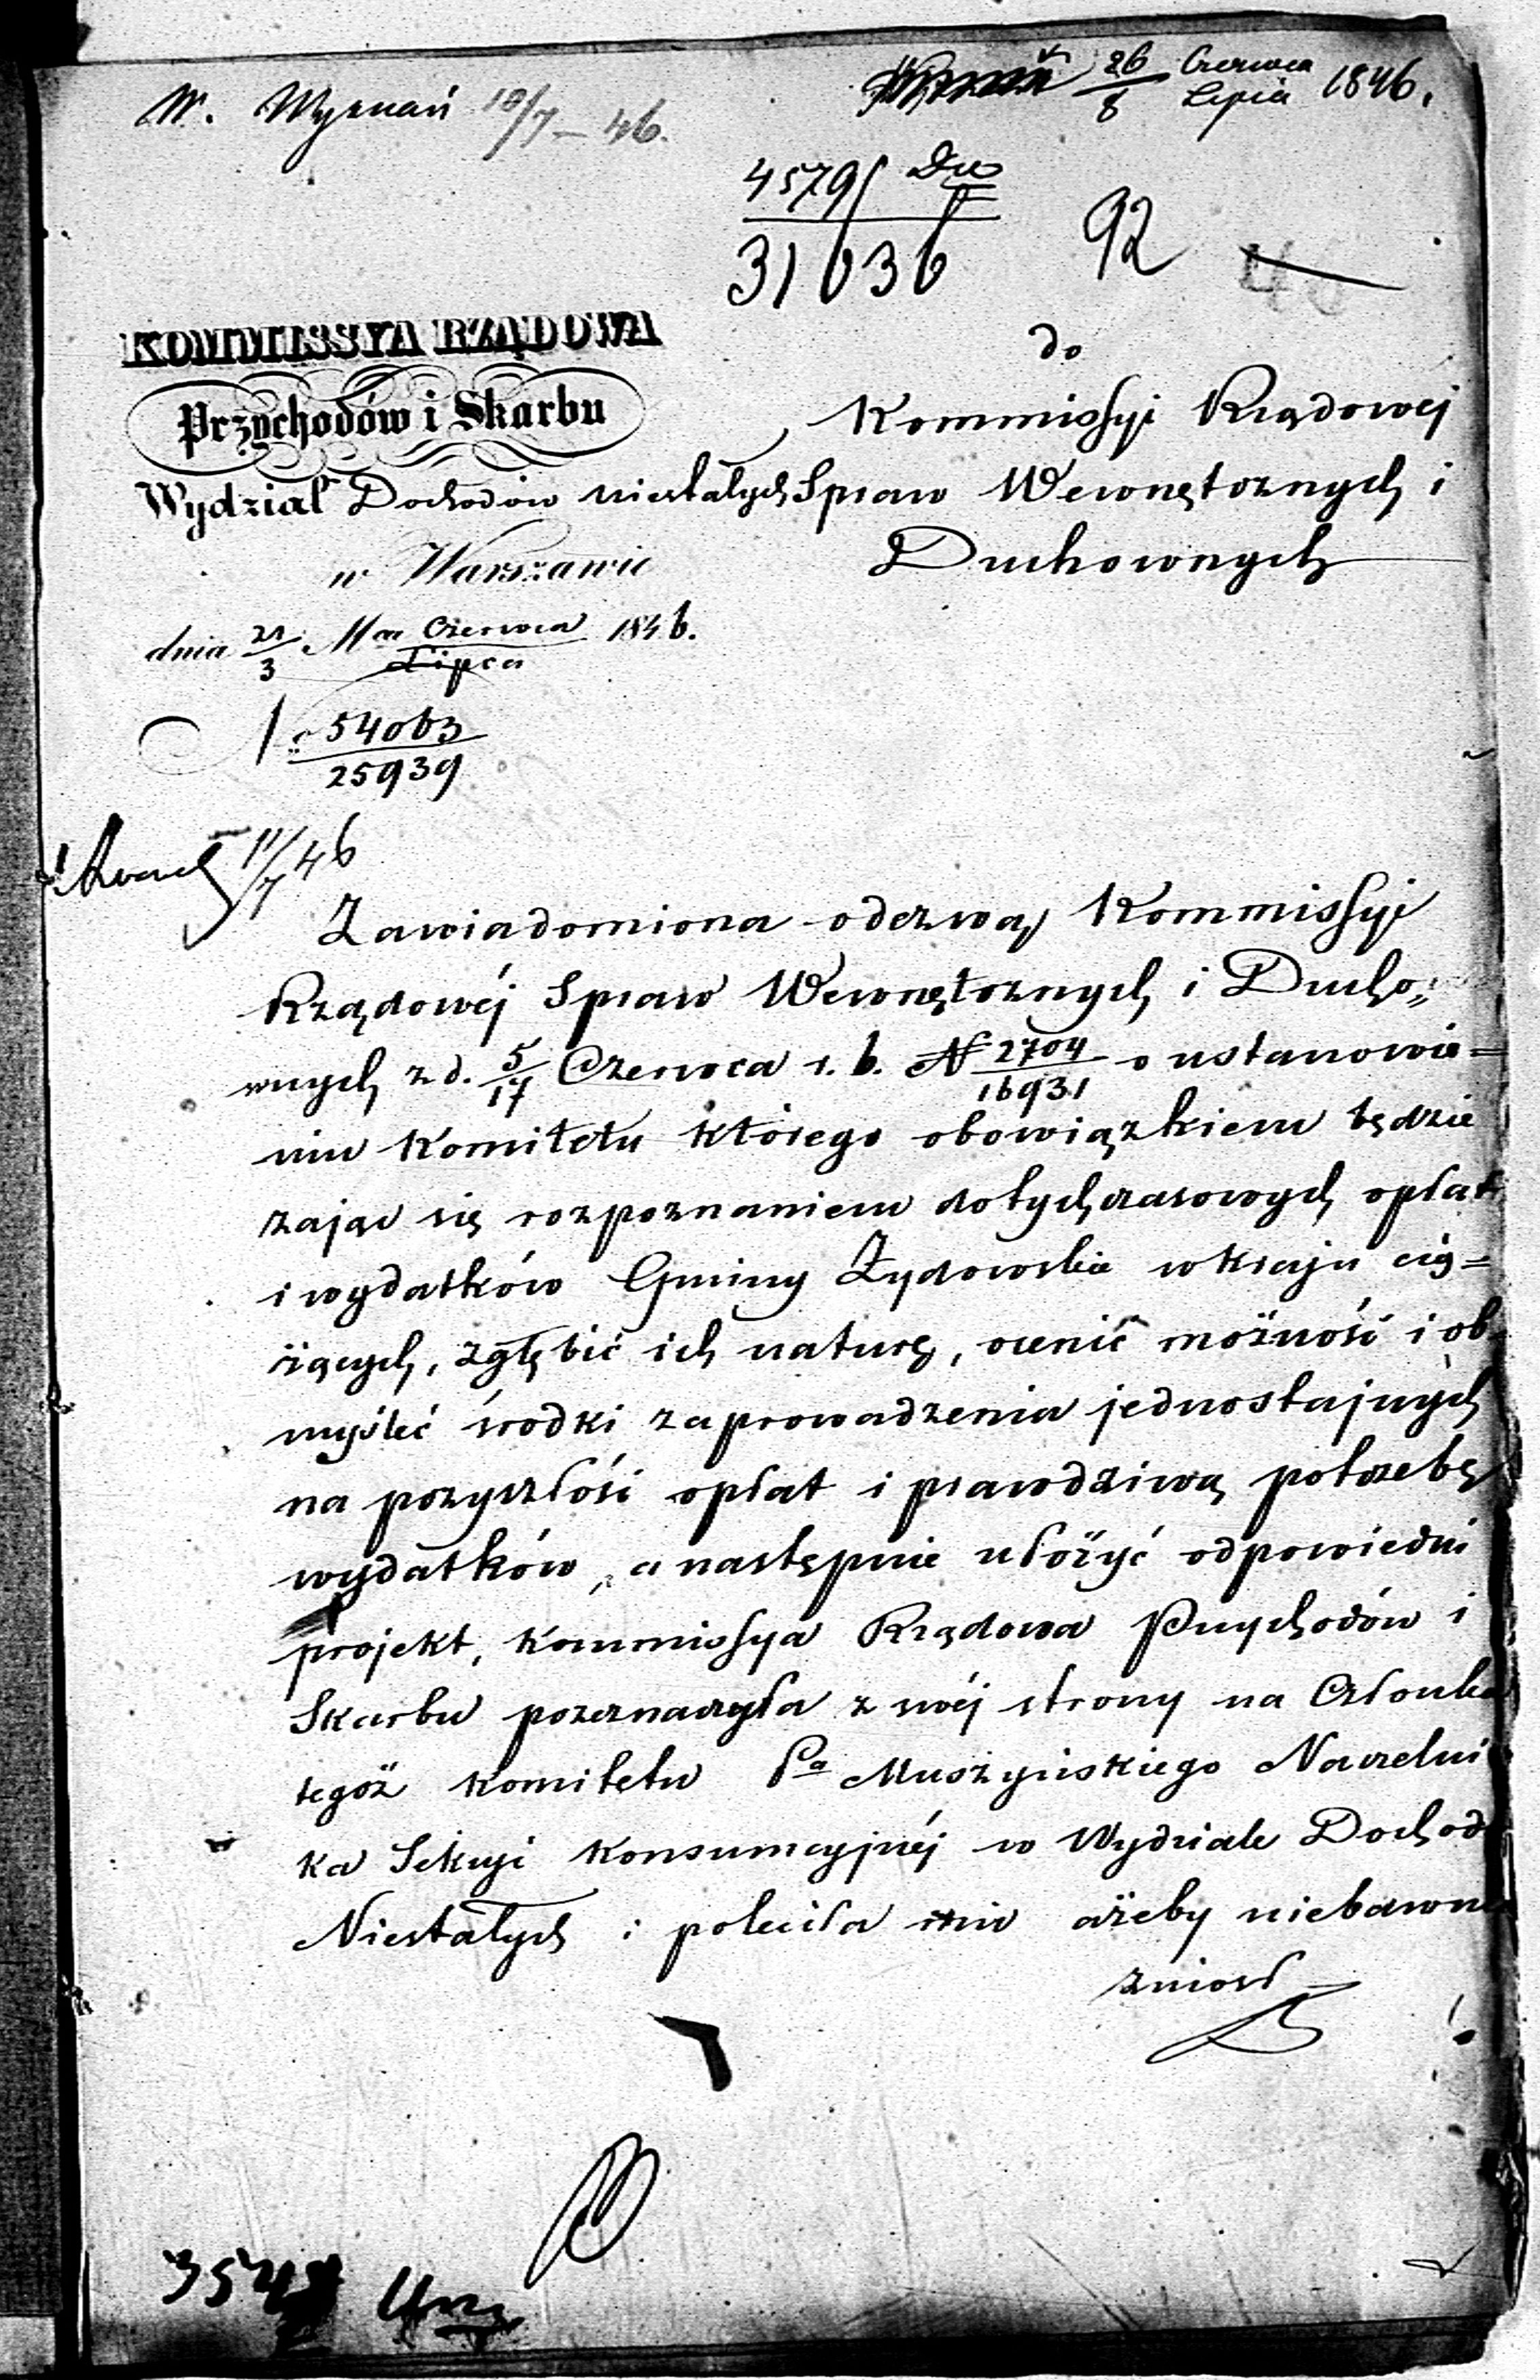 W. Wyznań 10/7 – 46.
26/8 Czerwca/Lipca 1846.
4579/31636
92
KOMMISSYA RZĄDOWA
Przychodów i Skarbu
Wydział Dochodów niestałych
w Warszawie
dnia 21/3 Mca Czerwca/Lipca 1846.
N 54063/25939
do
Kommissyi Rządowej
Spraw Wewnętrznych i
Duchownych
11/7 46
Zawiadomiona odezwą Kommissyi
Rządowéj Spraw Wewnętrznych i Ducho„
wnych z d. 5/17 Czerwca r. b. N 2704/16931 o ustanowie=
niu Komitetu którego obowiązkiem będzie
zająć się rozpoznaniem dotychczasowych opłat
i wydatków Gminy Żydowskie w kraju cią=
żących, zgłębić ich naturę, ocenić możność i ob
myśleć środki zaprowadzenia jednostajnych
na przyszłość opłat i prawdziwą potrzebę
wydatków, a następnie ułożyć odpowiedni
projekt, Kommissya Rządowa Przychodów i
Skarbu przeznaczyła z swéj strony na Członka
tegoż Komitetu Pa Muszyńskiego Naczelni
ka Sekcyi Konsumcyjnéj w Wydziale Dochod
Niestałych i poleciła mu ażeby niebawnie
zniosł